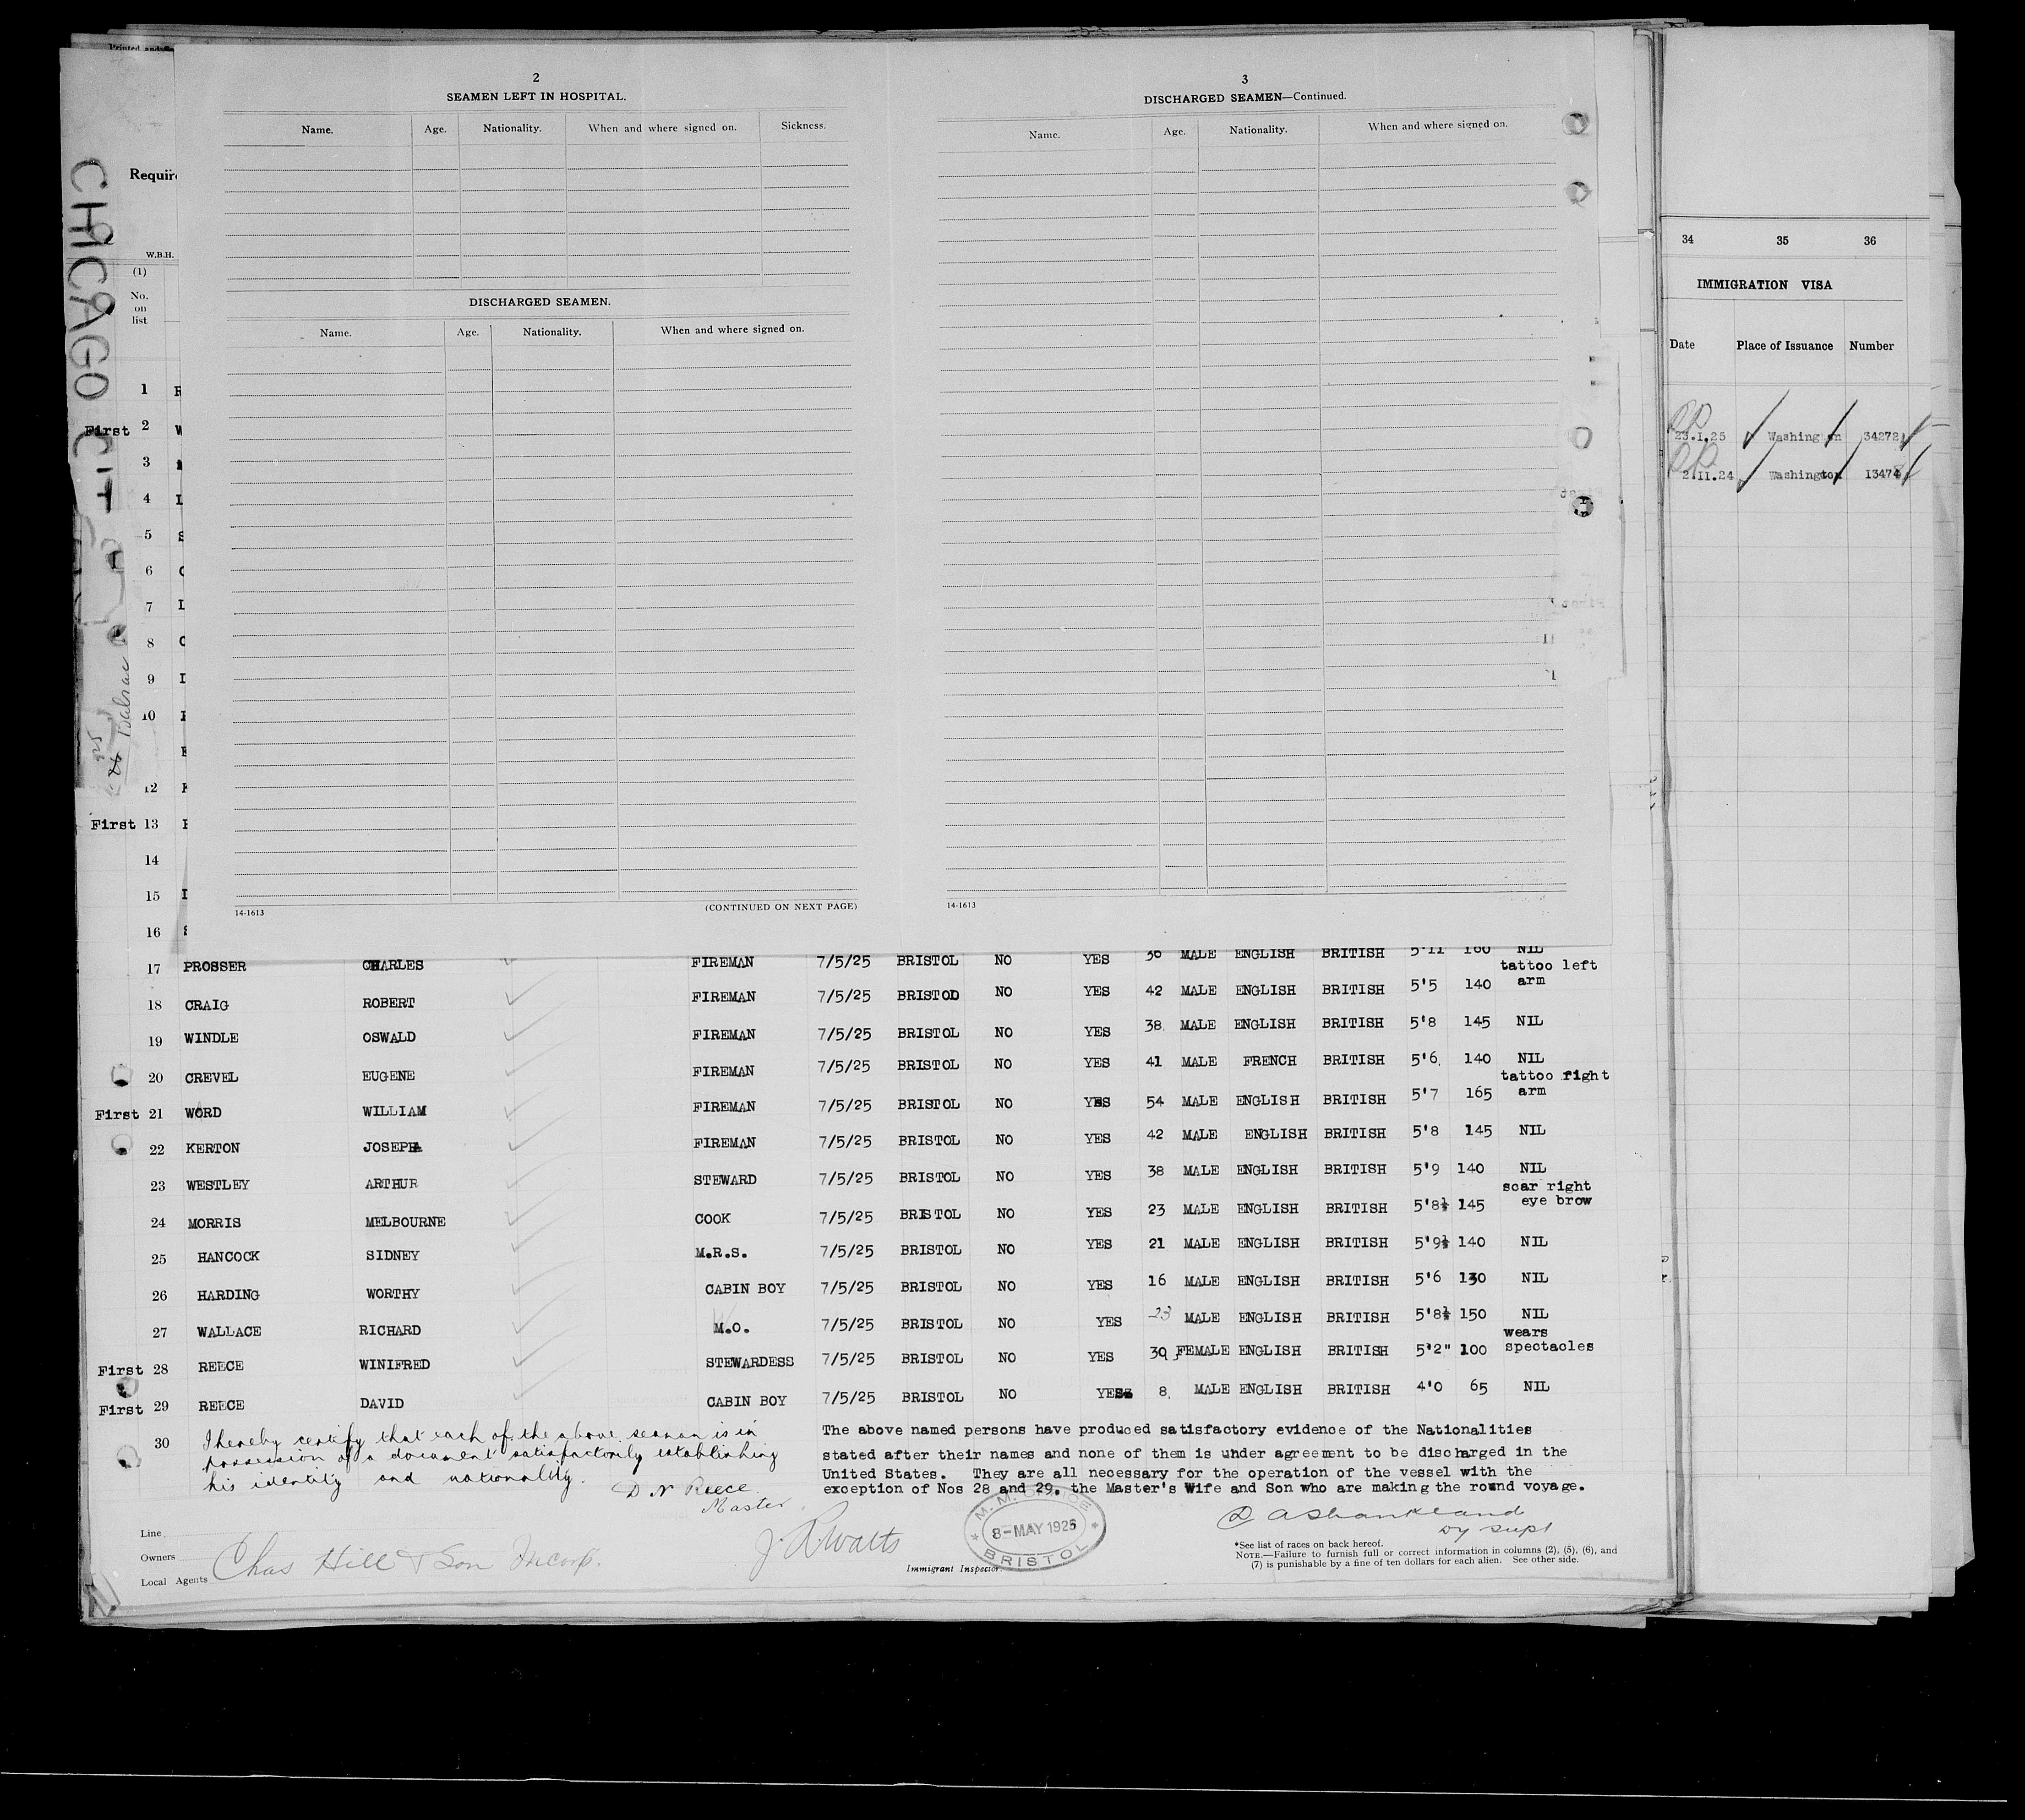 Printed and
2
SEAMEN LEFT IN HOSPITAL.
Name. Age. Nationality. When and where signed on. Sickness.
DISCHARGED SEAMEN.
Name. Age. Nationality. When and where signed on.
14-1613 (CONTINUED ON NEXT PAGE)
3
DISCHARGED SEAMEN—Continued.
Name. Age. Nationality. When and where signed on.
14-1613
CHICAGO CIT
Require
W.B.H.
(1)
No.
on
list
1
First 2
3
4
5
6
7
8
9
10
12
First 13
14
15
16
34 35 36
IMMIGRATION VISA
Date Place of Issuance Number
23.I.25 Washington 34272
2.II.24 Washington 13474
17 PROSSER CHARLES FIREMAN 7/5/25 BRISTOL NO YES 36 MALE ENGLISH BRITISH 5'11 160 NIL
tattoo left
arm
18 CRAIG ROBERT FIREMAN 7/5/25 BRISTOL NO YES 42 MALE ENGLISH BRITISH 5'5 140
19 WINDLE OSWALD FIREMAN 7/5/25 BRISTOL NO YES 38 MALE ENGLISH BRITISH 5'8 145 NIL
20 CREVEL EUGENE FIREMAN 7/5/25 BRISTOL NO YES 41 MALE FRENCH BRITISH 5'6 140 NIL
tattoo right
arm
First 21 WORD WILLIAM FIREMAN 7/5/25 BRISTOL NO YES 54 MALE ENGLISH BRITISH 5'7 165
22 KERTON JOSEPH FIREMAN 7/5/25 BRISTOL NO YES 42 MALE ENGLISH BRITISH 5'8 145 NIL
23 WESTLEY ARTHUR STEWARD 7/5/25 BRISTOL NO YES 38 MALE ENGLISH BRITISH 5'9 140 NIL
scar right
eye brow
24 MORRIS MELBOURNE COOK 7/5/25 BRISTOL NO YES 23 MALE ENGLISH BRITISH 5'8½ 145
25 HANCOCK SIDNEY M.R.S. 7/5/25 BRISTOL NO YES 21 MALE ENGLISH BRITISH 5'9½ 140 NIL
26 HARDING WORTHY CABIN BOY 7/5/25 BRISTOL NO YES 16 MALE ENGLISH BRITISH 5'6 130 NIL
27 WALLACE RICHARD M.O. 7/5/25 BRISTOL NO YES 23 MALE ENGLISH BRITISH 5'8½ 150 NIL
wears
spectacles
First 28 REECE WINIFRED STEWARDESS 7/5/25 BRISTOL NO YES 39 FEMALE ENGLISH BRITISH 5'2" 100
First 29 REECE DAVID CABIN BOY 7/5/25 BRISTOL NO YES 8 MALE ENGLISH BRITISH 4'0 65 NIL
30 I hereby certify that each of the above seaman is in
possession of a document satisfactorily establishing
his identity and nationality.
D N Reece
Master
The above named persons have produced satisfactory evidence of the Nationalities
stated after their names and none of them is under agreement to be discharged in the
United States. They are all necessary for the operation of the vessel with the
exception of Nos 28 and 29, the Master's Wife and Son who are making the round voyage.
M. M. OFFICE
8-MAY 1925
BRISTOL
Dy Supt
Line
Owners
Local Agents
Chas Hill & Son Incorp.
J R Watts
Immigrant Inspector.
*See list of races on back hereof.
NOTE.—Failure to furnish full or correct information in columns (2), (5), (6), and
(7) is punishable by a fine of ten dollars for each alien. See other side.